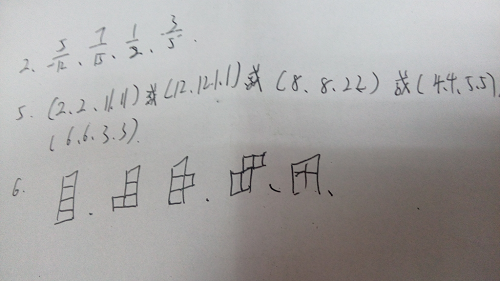 2. 5/12、7/15、1/2、3/5.
5. (2、2、11、11)或(12、12、1、1)或(8、8、2、2)或(4、4、5、5)、
(6、6、3、3)
6.